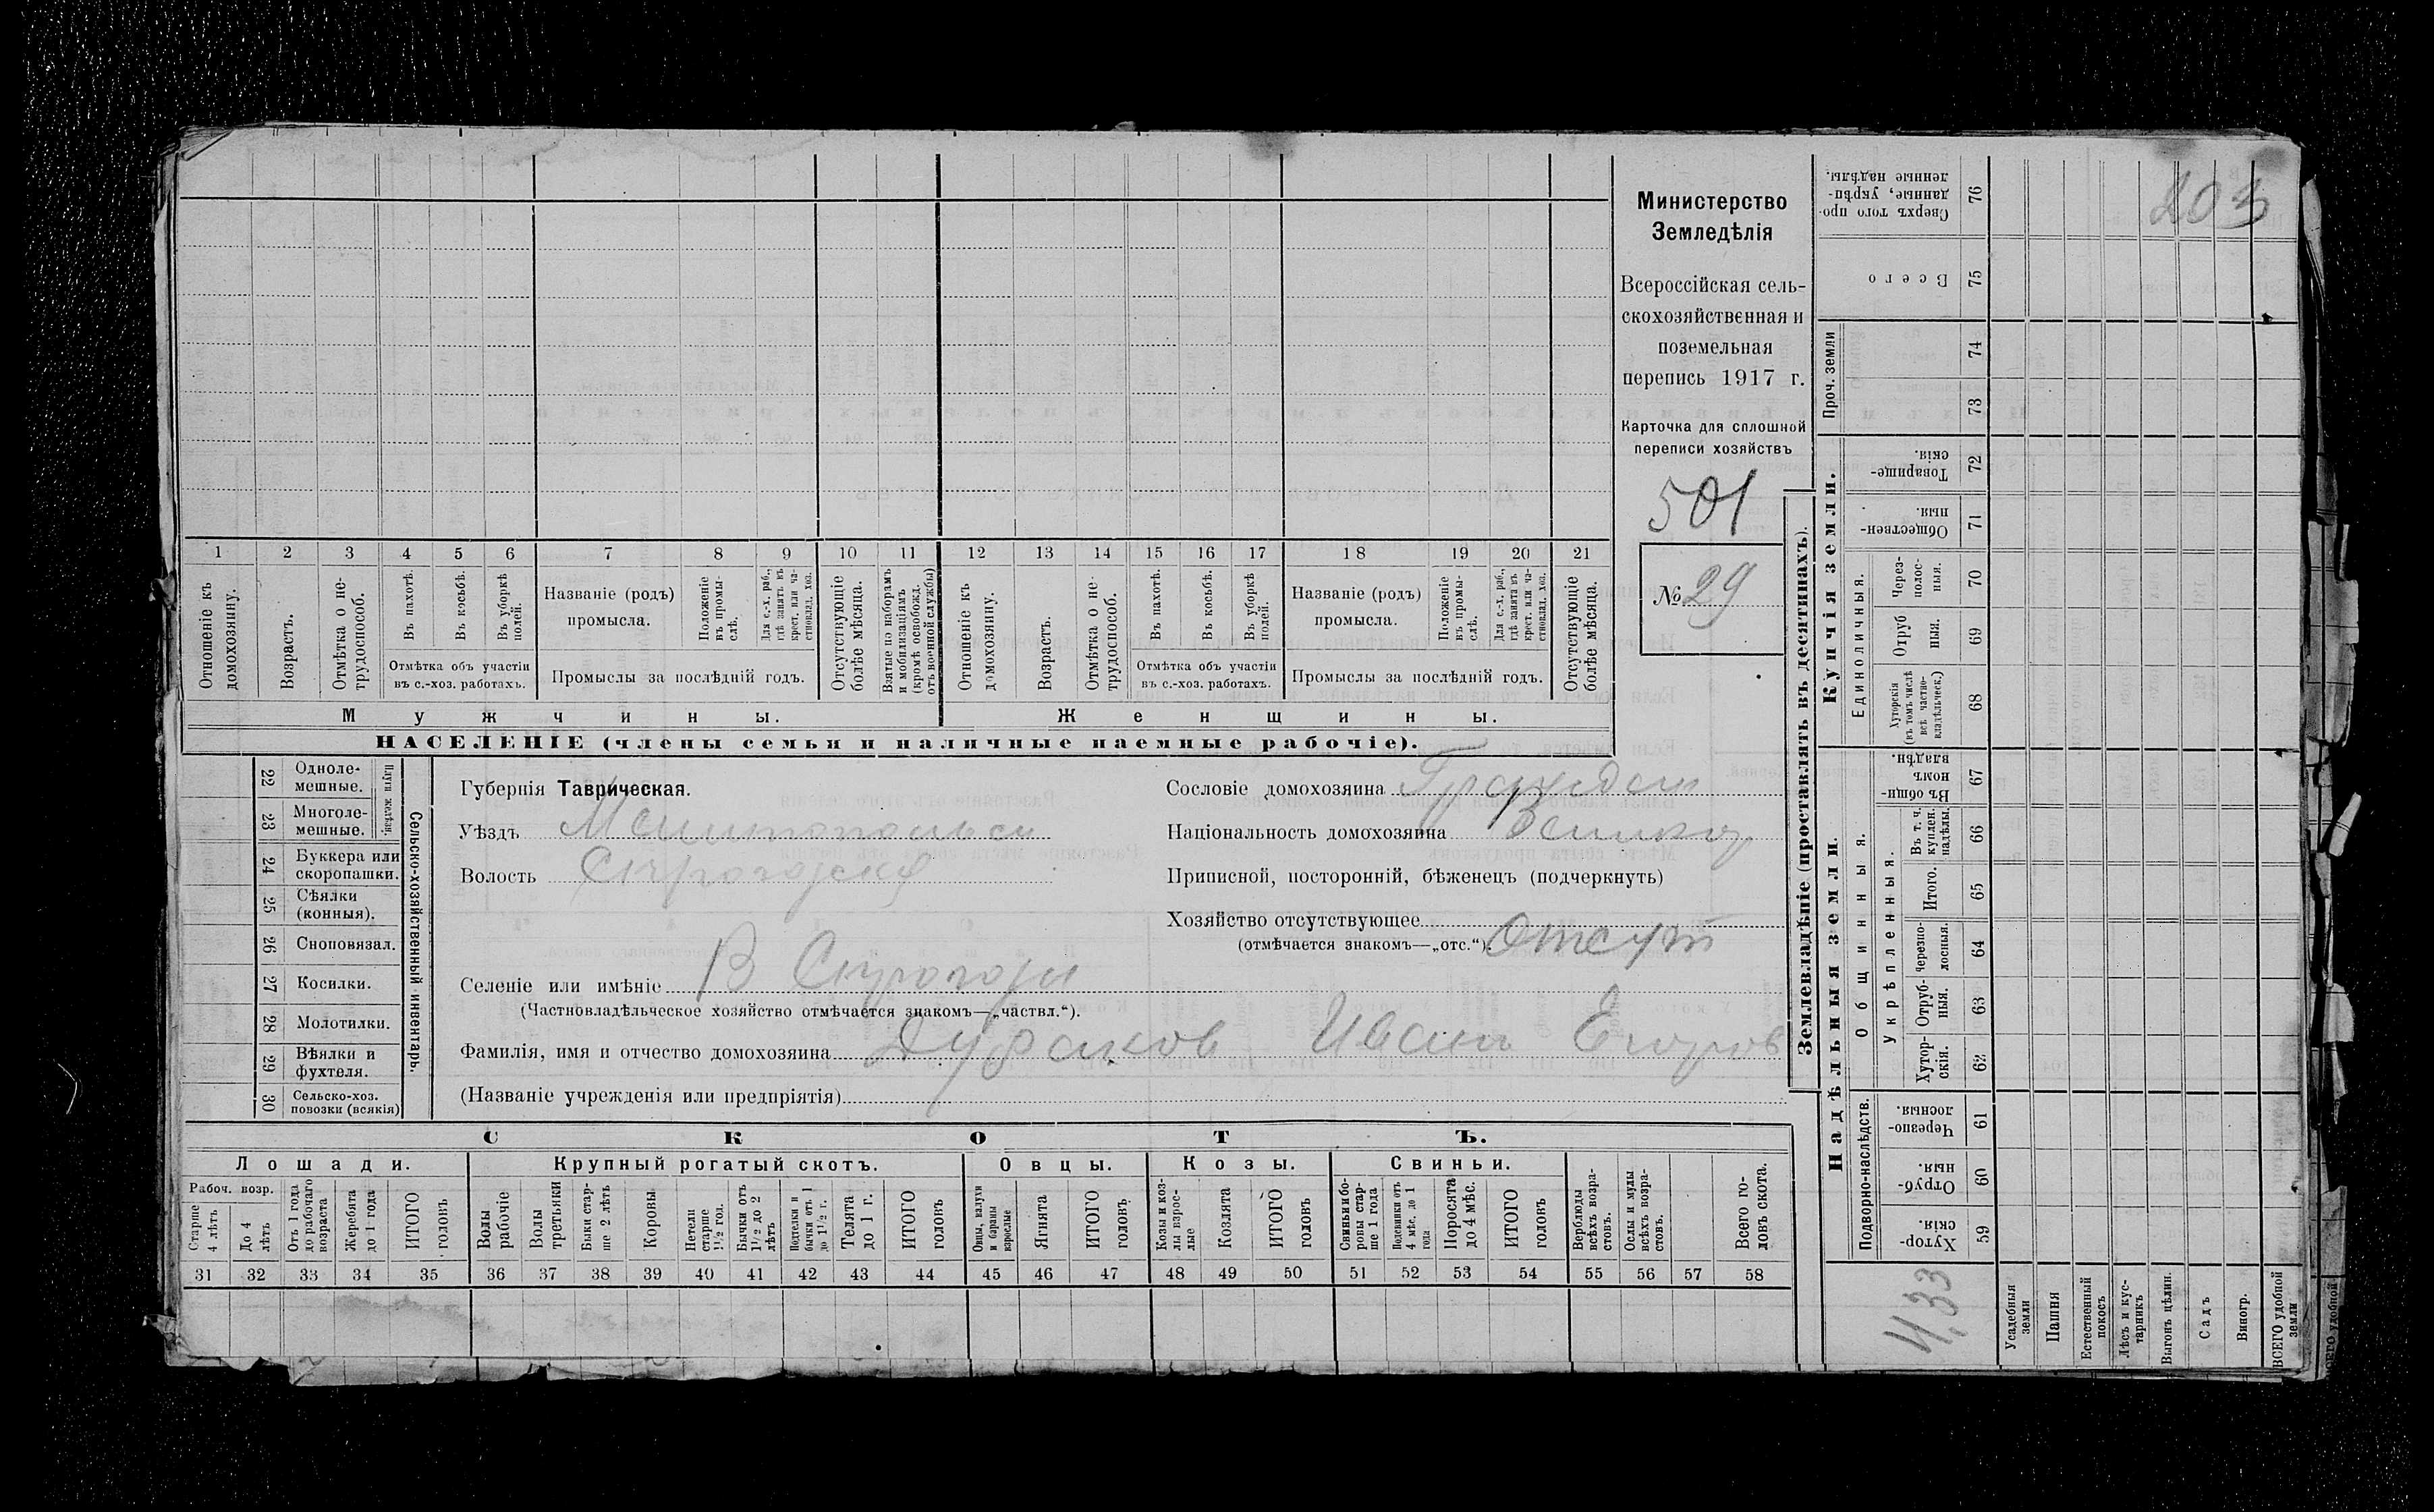 Министерство
Земледѣлія
Всероссійская сель-
скохозяйственная и
поземельная
перепись 1917 г.
Карточка для сплошной
переписи хозяйствъ
501
№ 29
203
1 2 3 4 5 6 7 8 9 10 11 12 13 14 15 16 17 18 19 20 21
Отношеніе къ домохозяину.
Возрастъ.
Отмѣтка о не-трудоспособ.
Въ пахотѣ.
Въ косьбѣ.
Въ уборкѣ полей.
Отмѣтка объ участіи
въ с.-хоз. работахъ.
Названіе (родъ)
промысла.
Положеніе въ промы-слѣ.
Для с.-х. раб., гдѣ занятъ въ крест. или ча-стновлад. хоз.
Промыслы за послѣдній годъ.
Отсутствующіе болѣе мѣсяца.
Взятые по наборамъ и мобилизаціямъ (кромѣ освобожд. отъ военной службы)
Отношеніе къ домохозяину.
Возрастъ.
Отмѣтка о не-трудоспособ.
Въ пахотѣ.
Въ косьбѣ.
Въ уборкѣ полей.
Отмѣтка объ участіи
въ с.-хоз. работахъ.
Названіе (родъ)
промысла.
Положеніе въ промы-слѣ.
Для с.-х. раб., гдѣ занята въ крест. или ча-стновлад. хоз.
Промыслы за послѣдній годъ.
Отсутствующіе болѣе мѣсяца.
Мужчины.
Женщины.
НАСЕЛЕНІЕ (члены семьи и наличные наемные рабочіе).
22 Одноле-мешные.
23 Многоле-мешные.
24 Буккера или скоропашки.
25 Сѣялки (конныя).
26 Сноповязал.
27 Косилки.
28 Молотилки.
29 Вѣялки и фухтеля.
30 Сельско-хоз. повозки (всякія)
Сельско-хозяйственный инвентарь.
Губернія Таврическая.
Уѣздъ
Волость
Селеніе или имѣніе В
(Частновладѣльческое хозяйство отмѣчается знакомъ—„частвл.“).
Фамилія, имя и отчество домохозяина Дураков Иван Егоров
(Названіе учрежденія или предпріятія)
Сословіе домохозяина
Національность домохозяина
Приписной, посторонній, бѣженецъ (подчеркнуть)
Хозяйство отсутствующее
(отмѣчается знакомъ—„отс.“). Отсут
СКОТЪ.
Лошади.
Крупный рогатый скотъ.
Овцы.
Козы.
Свиньи.
Рабоч. возр.
Старше 4 лѣтъ
До 4 лѣтъ
Отъ 1 года до рабочаго возраста
Жеребята до 1 года
ИТОГО головъ
Волы рабочіе
Волы третьяки
Быки стар-ше 2 лѣтъ
Коровы
Нетели старше 1½ год.
Бычки отъ 1½ до 2 лѣтъ
Подтелки и бычки отъ 1 до 1½ г.
Телята до 1 г.
ИТОГО головъ
Овцы, валухи и бараны взрослые
Ягнята
ИТОГО головъ
Козы и коз-лы взрос-лые
Козлята
ИТОГО головъ
Свиньи и бо-ровы стар-ше 1 года
Подсвинки отъ 4 мѣс. до 1 года
Поросята до 4 мѣс.
ИТОГО головъ
Верблюды всѣхъ возра-стовъ.
Ослы и мулы всѣхъ возра-стовъ.
Всего го-ловъ скота.
31 32 33 34 35 36 37 38 39 40 41 42 43 44 45 46 47 48 49 50 51 52 53 54 55 56 57 58
Землевладѣніе (проставлять въ десятинахъ).
Купчія земли.
Надѣльныя земли.
Проч. земли
Единоличныя.
Общинныя.
Укрѣпленныя.
Подворно-наслѣдств.
Сверхъ того про-данные, укрѣп-ленные надѣлы. 76
Всего 75
74
73
Товарище-скія. 72
Обществен-ныя. 71
Через-полос-ныя. 70
Отруб ныя. 69
Хуторскія (въ томъ числѣ всѣ частно-владѣльческ.) 68
Въ общи-номъ владѣн. 67
Въ т. ч. куплен. надѣлы 66
Итого. 65
Черезпо-лосныя. 64
Отруб-ныя. 63
Хутор-скія. 62
Черезпо-лосныя. 61
Отруб-ныя. 60
Хутор-скія. 59
433
Усадебныя земли
Пашня
Естественный покосъ
Лѣсъ и кус-тарникъ
Выгонъ цѣлин.
Садъ
Виногр.
ВСЕГО удобной земли